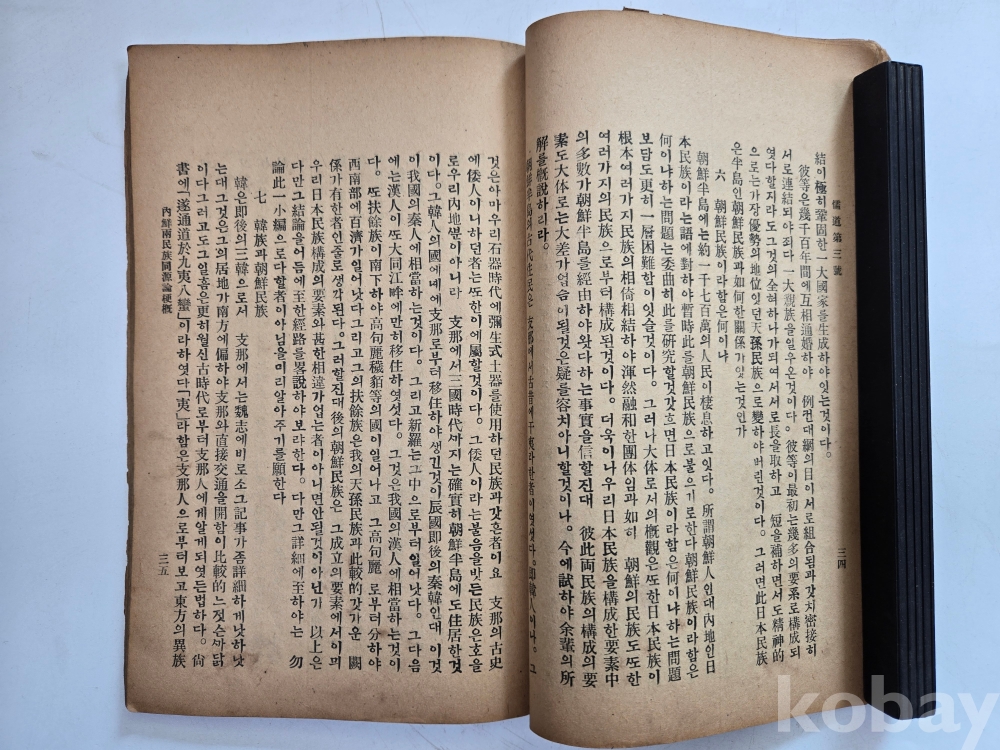 儒道第三號
三四
結이極히鞏固한一大國家를生成하야잇는것이다.
彼等은幾千百年間에互相通婚하야 例컨대綱의目이서로組合됨과갓치密接히
서로連結되야죄다一大親族을일우온것이다。彼等이最初는幾多의要系로構成되
엿다할지라도그것의全혀하나가되여서서로長을取하고 短을補하면서도精神的
으로는가장優勢의地位잇던天孫民族으로變하야버린것이다。그러면此日本民族
은半島인朝鮮民族과如何한關係가잇는것인가
六 朝鮮民族이라함은何이냐
朝鮮半島에는約一千七百萬의人民이棲息하고잇다。所謂朝鮮人인대內地인日
本民族이라는語에對하야暫時此를朝鮮民族으로불으기로한다朝鮮民族이라함은
何이냐하는問題는委曲히此를研究할것갓흐면日本民族이라함은何이냐하는問題
보담도更히一層困難함이잇슬것이다。그러나大体로서의槪觀은또한日本民族이
根本여러가지民族의相倚相結하야渾然融和한團体임과如히 朝鮮의民族도또한
여러가지의民族으로부터構成된것이다。더욱이나우리日本民族을構成한要素中
의多數가朝鮮半島를經由하야왓다하는事實을信할진대 彼此兩民族의構成의要
素도大体로는大差가업슴이될것은疑를容치아니할것이다。今에試하야余輩의所
解를槪說하리라。
것은아마우리石器時代에彌生式土器를使用하던民族과갓흔者이요 支那의古史
에倭人이니하던者는또한이에屬할것이다。그倭人이라는불음을밧은民族은호을
로우리內地분이아니라 支那에서三國時代까지는確實히朝鮮半島에도住居한것
이다。그韓人의國에네에支那로부터移住하야생긴것이辰國即後의秦韓인대 이것
이我國의秦人에相當하는것이다。그리고新羅는그中으로부터일어낫다。그다음
에는漢人이또大同江畔에만히移住하엿섯다。그것은我國의漢人에相當하는것이
다。또扶餘族이南下하야高句麗穢貊等의國이일어나고그高句麗로부터分하야
西南部에百濟가일어낫다그리고그의扶餘族은我의天孫民族과此較的갓가운 關
係가有한者인줄로생각된다。그러할진대後의朝鮮民族은그成立의要素에서이며
우리日本民族構成의要素와甚한相違가업는者이아니면안될것이아닌가 以上은
다만그結論을어듬에至한經路를畧說하야보랴한다。다만그詳細에至하야는 勿
論此一小編으로다할者이아님을미리알아주기를願한다
七 韓族과朝鮮民族
韓은即後의三韓으로서 支那에서는魏志에비로소그記事가좀詳細하게낫하낫
는대그것은그의居地가南方에偏하야支那와直接交通을開함이比較的느젓슨까닭
이다그러고도그일홈은更히월신古時代로부터支那人에게알게되엿든법하다。尙
書에「遂通道於九夷八蠻」이라하엿다「夷」라함은支那人으로부터보고東方의異族
內鮮兩民族同源論梗槪
三五